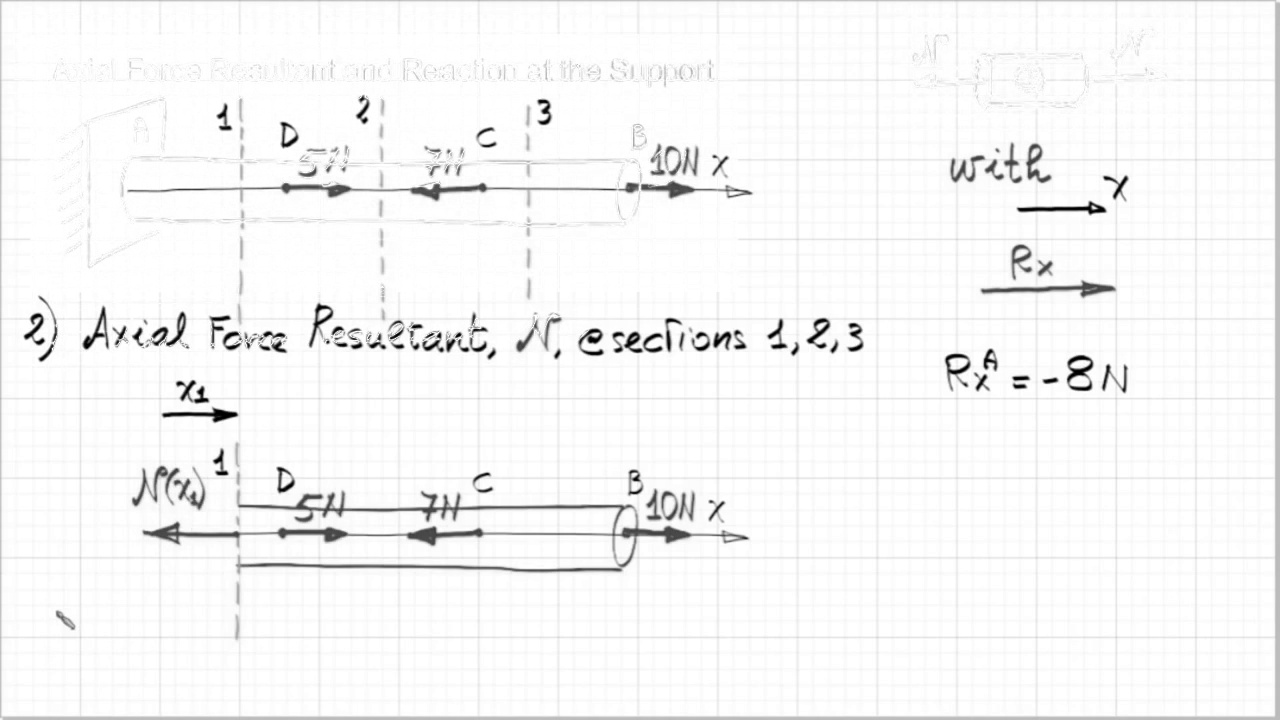 Axial Force Resultant and Reaction at the Support
N N
1 2 3
A D C B
5N 7N 10N x
with
x
Rx
2) Axial Force Resultant, N, @ sections 1, 2, 3
RxA = -8N
x1
1
N(x1) D C B
5N 7N 10N x